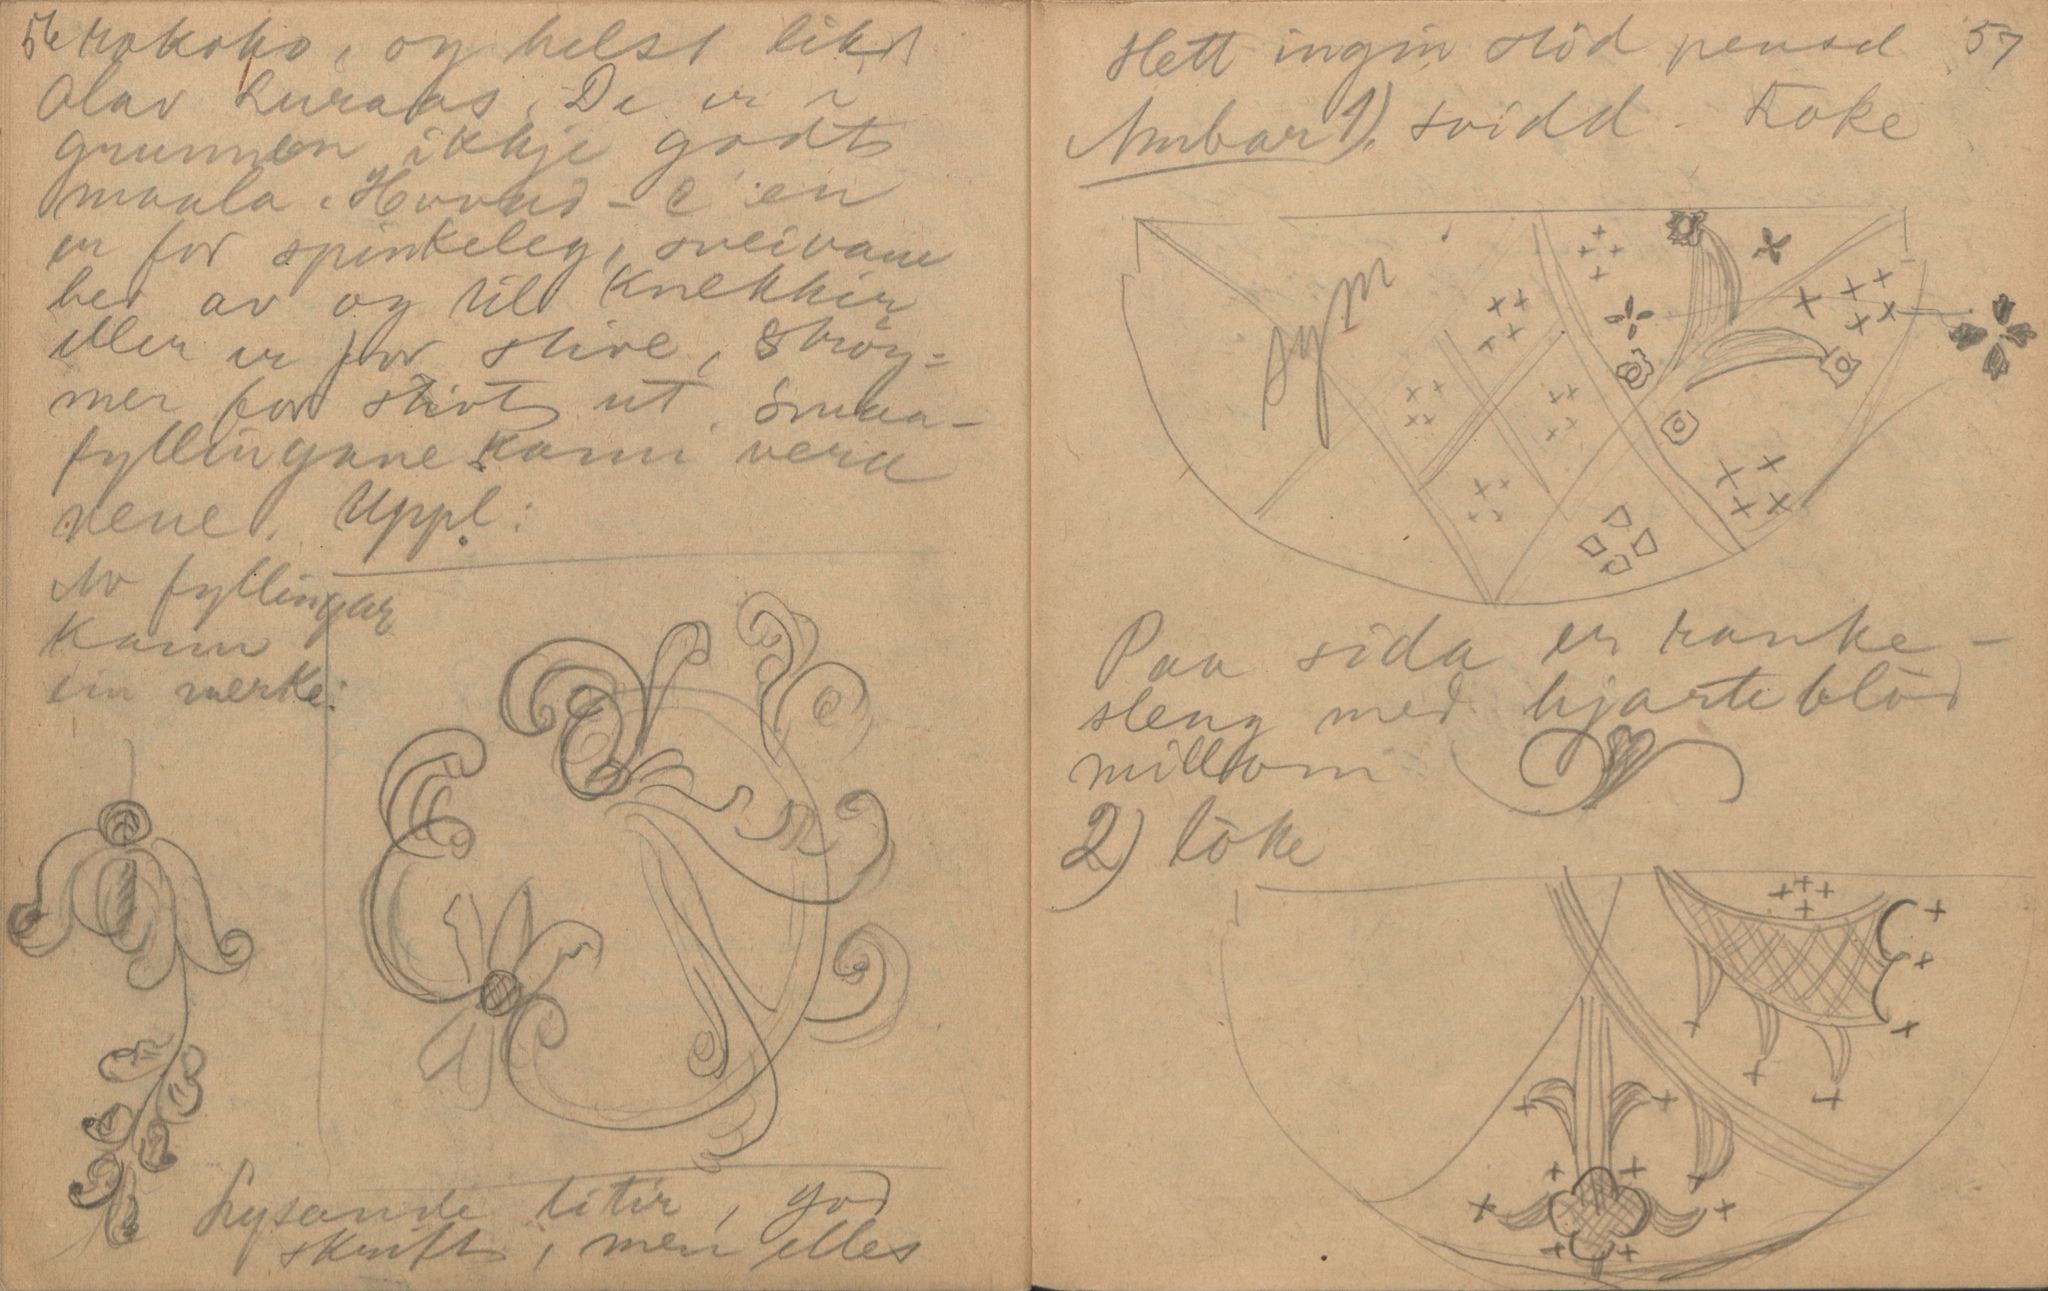 56 rokoko, og helst likt
Olav Luraas. De er i
grunnen ikkje godt
maala. Hovud-C'en
er for spinkeleg, sveivane
her av og til knekkir
eller er for stive, Strøy-
mer for stivt ut. Smaa-
fyllingane kann vera
pene. Uppl:
Av fyllingar
kann
ein merke:
Lysande litir, god
skrift, men elles
slett ingin stød pensel 57
Ambar 1), svidd. Toke
sym
Paa sida er ranke-
sleng med hjarteblød
millom
2) löke